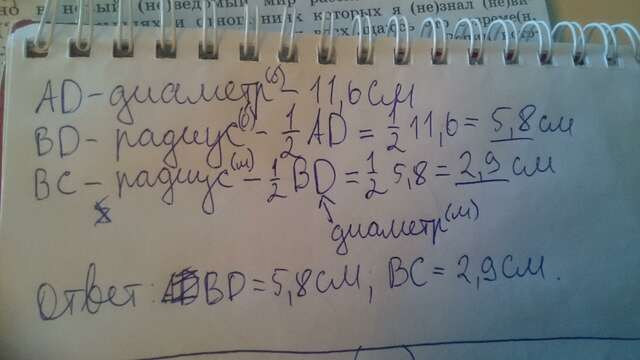 но в новый (не)ведомый мир
которых я (не)знал (не)ви
AD - диаметр(б) - 11,6 см
BD - радиус(б) - 1/2 AD = 1/2 11,6 = 5,8 см
BC - радиус(м) - 1/2 BD = 1/2 5,8 = 2,9 см
диаметр(м)
Ответ: BD = 5,8 см, BC = 2,9 см.